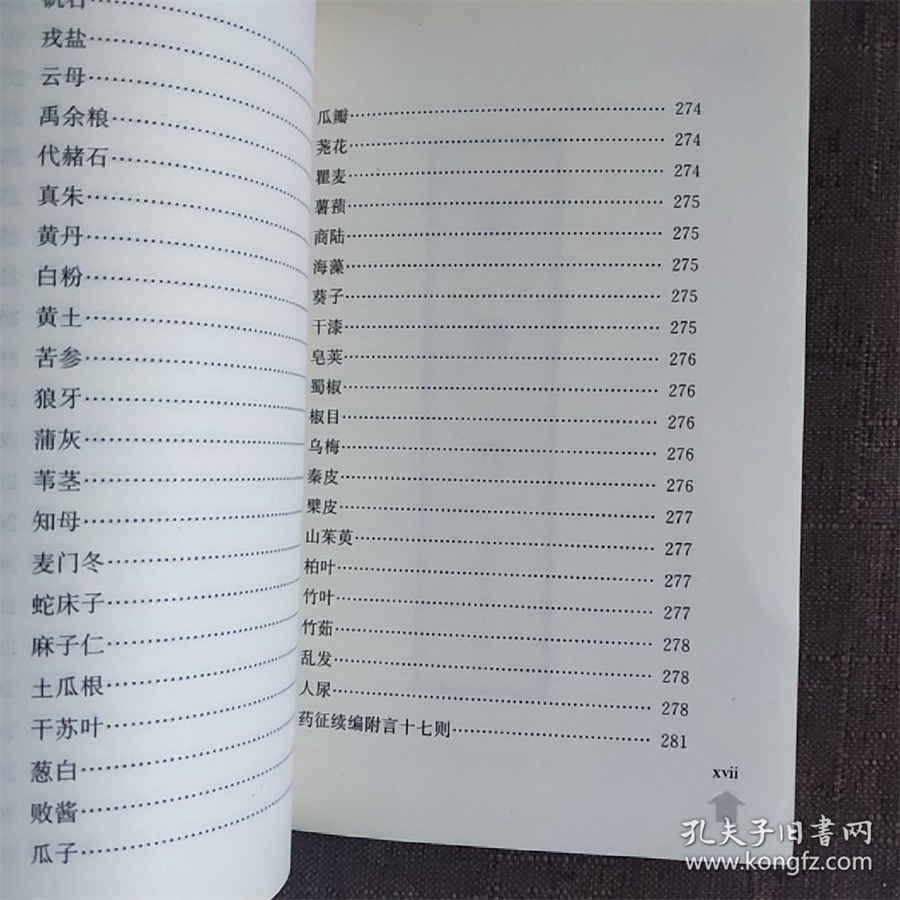 戎盐
云母
禹余粮
代赭石
真朱
黄丹
白粉
黄土
苦参
狼牙
蒲灰
苇茎
知母
麦门冬
蛇床子
麻子仁
土瓜根
干苏叶
葱白
败酱
瓜子
瓜瓣 274
荛花 274
瞿麦 274
薯蓣 275
商陆 275
海藻 275
葵子 275
干漆 275
皂荚 276
蜀椒 276
椒目 276
乌梅 276
秦皮 276
檗皮 277
山茱萸 277
柏叶 277
竹叶 277
竹茹 278
乱发 278
人尿 278
药征续编附言十七则 281
xvii
孔夫子旧書网
www.kongfz.com